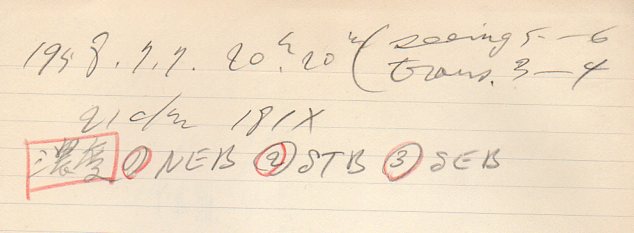 1958.7.7. 20h.20m (seeing 5-6
trans. 3-4
21cm 181X
濃度 ① NEB ② STB ③ SEB